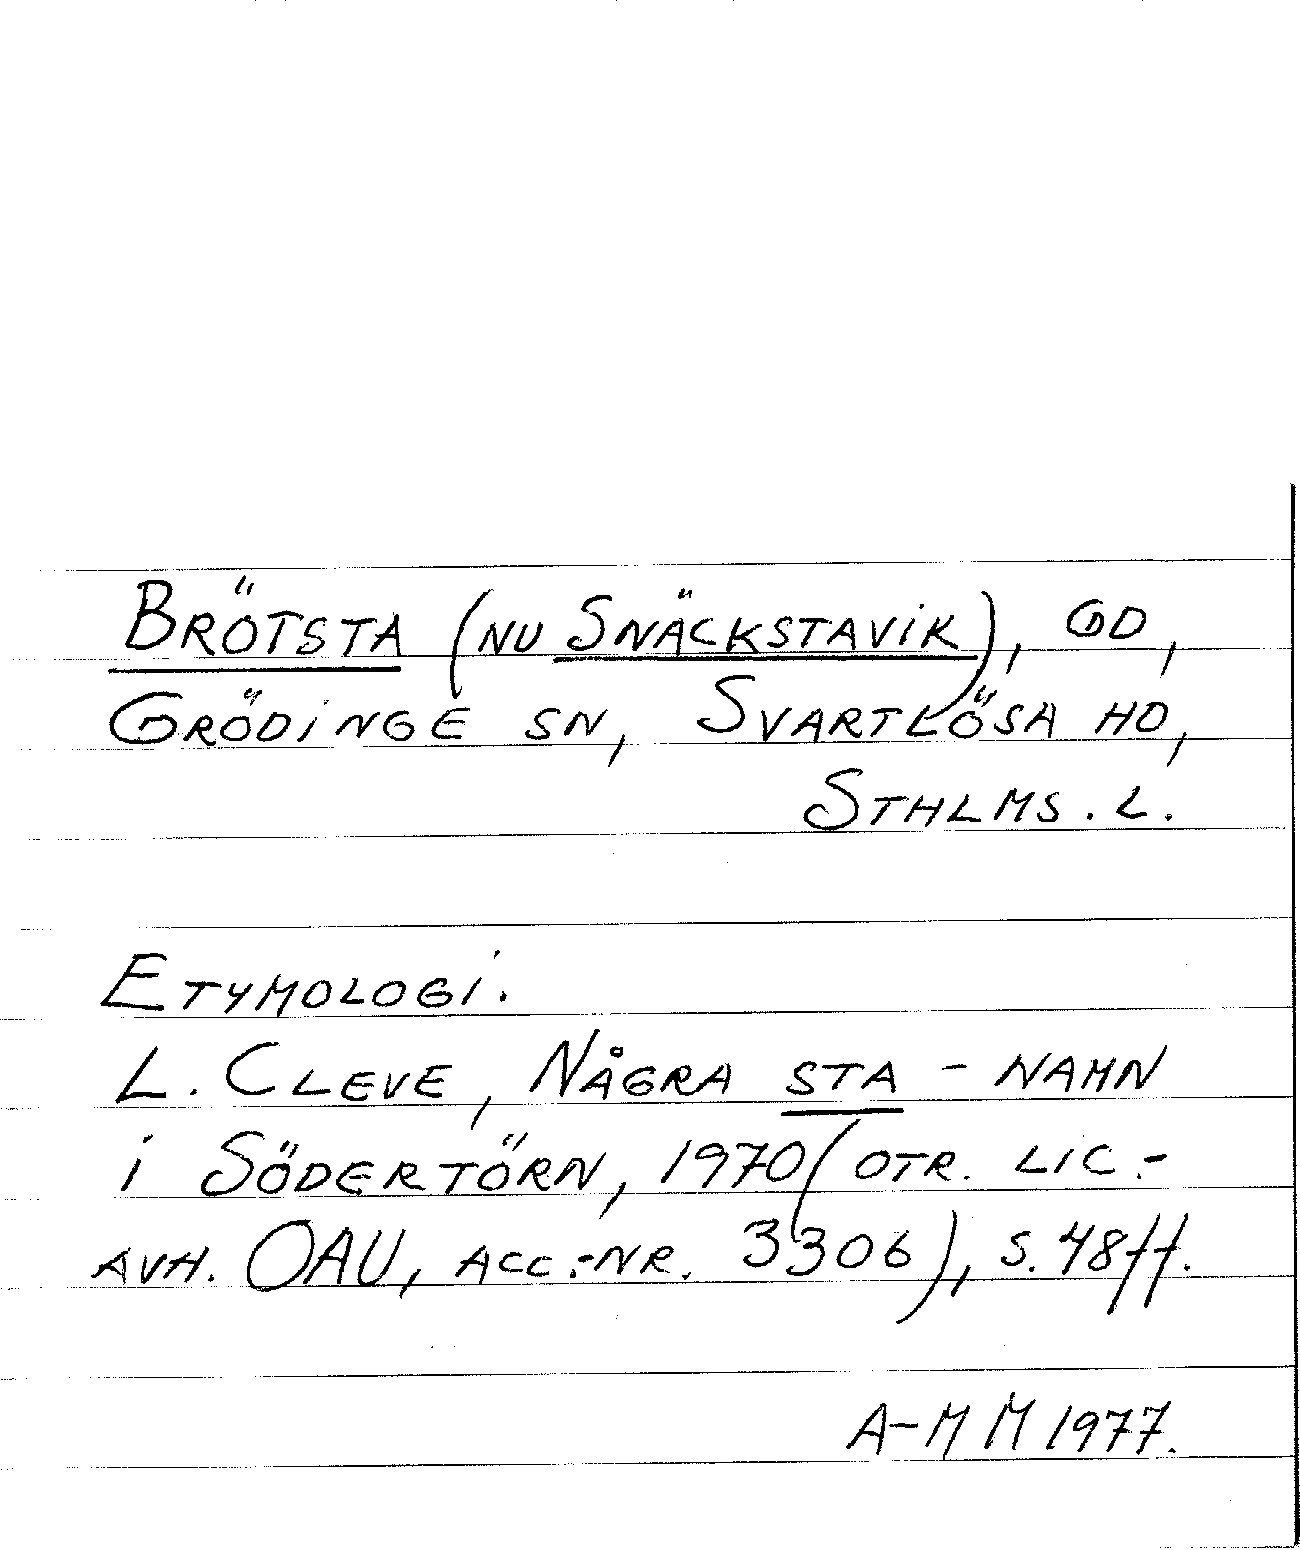 BRÖTSTA (NU SNÄCKSTAVIK), GD,
GRÖDINGE SN, SVARTLÖSA HD,
STHLMS. L.
ETYMOLOGI.
L. CLEVE, NÅGRA STA - NAMN
I SÖDERTÖRN, 1970 (OTR. LIC.-
AVH. OAU, ACC.-NR. 3306), S. 48ff.
A-M M 1977.